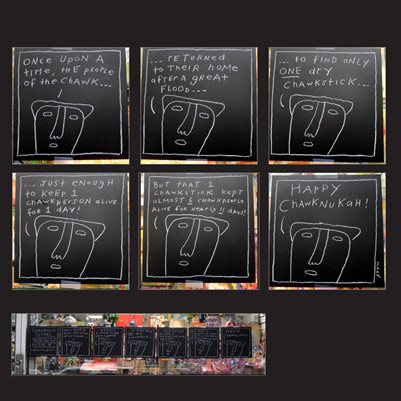 ONCE UPON A
TIME, THE PEOPLE
OF THE CHAWK...
... RETURNED
TO THEIR HOME
AFTER A GREAT
FLOOD...
... TO FIND ONLY
ONE DRY
CHAWKSTICK...
... JUST ENOUGH
TO KEEP 1
CHAWKPERSON ALIVE
FOR 1 DAY!
BUT THAT 1
CHAWKSTICK KEPT
ALMOST 6 CHAWKPEOPLE
ALIVE FOR NEARLY 11 DAYS!
HAPPY
CHAWKNUKAH!